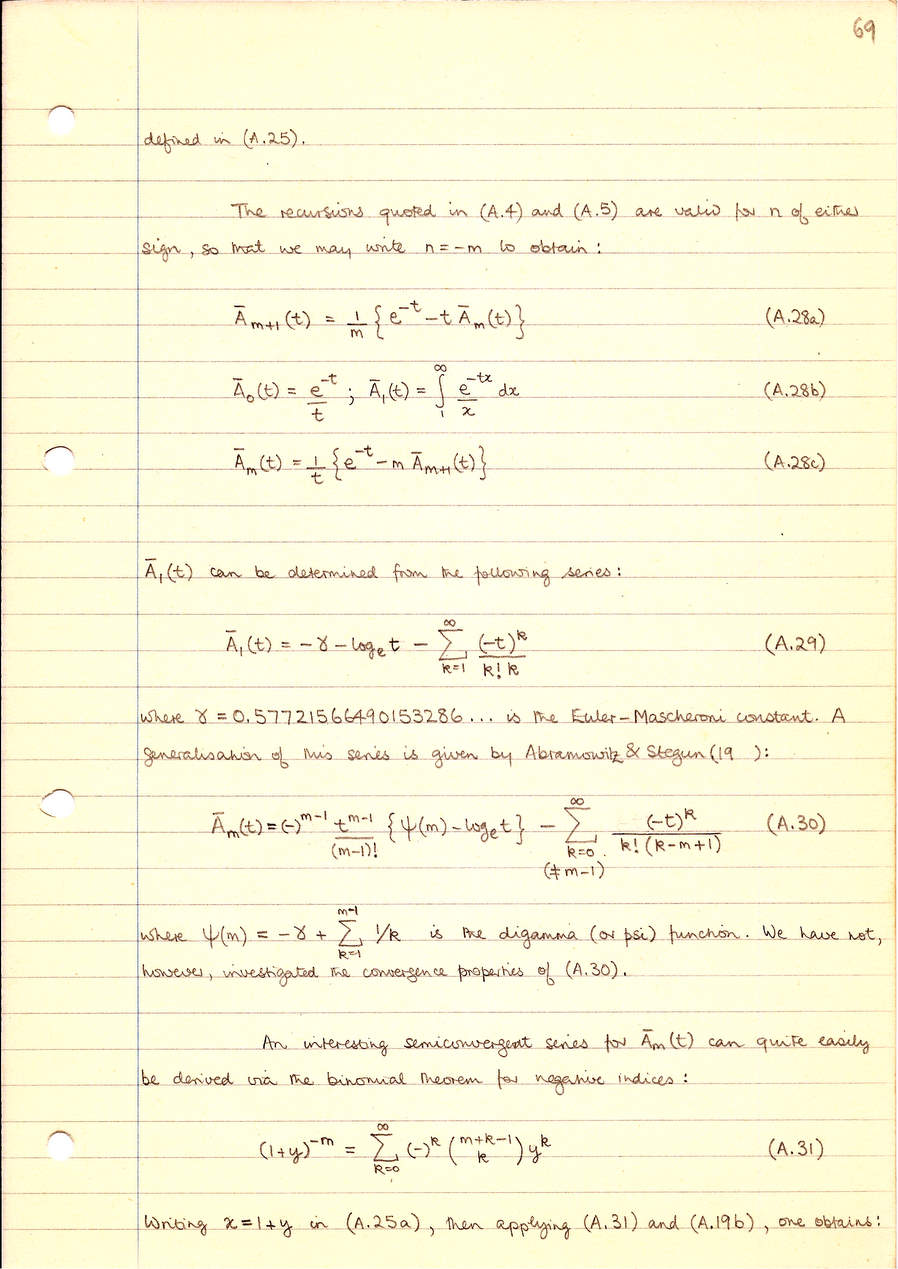 69
defined in (A.25).
The recursions quoted in (A.4) and (A.5) are valid for n of either
sign, so that we may write n = -m to obtain :
Ā_{m+1}(t) = 1/m { e^{-t} - t Ā_m(t) } (A.28a)
Ā_0(t) = e^{-t}/t ; Ā_1(t) = ∫_1^∞ e^{-tx}/x dx (A.28b)
Ā_m(t) = 1/t { e^{-t} - m Ā_{m+1}(t) } (A.28c)
Ā_1(t) can be determined from the following series :
Ā_1(t) = -γ - log_e t - ∑_{k=1}^∞ (-t)^k / k! k (A.29)
where γ = 0.57721566490153286... is the Euler-Mascheroni constant. A
generalisation of this series is given by Abramowitz & Stegun (19 ):
Ā_m(t) = (-)^{m-1} t^{m-1}/(m-1)! { ψ(m) - log_e t } - ∑_{k=0 (≠m-1)}^∞ (-t)^k / k! (k-m+1) (A.30)
where ψ(m) = -γ + ∑_{k=1}^{m-1} 1/k is the digamma (or psi) function. We have not,
however, investigated the convergence properties of (A.30).
An interesting semiconvergent series for Ā_m(t) can quite easily
be derived via the binomial theorem for negative indices :
(1+y)^{-m} = ∑_{k=0}^∞ (-)^k (m+k-1 k) y^k (A.31)
Writing x = 1+y in (A.25a), then applying (A.31) and (A.19b), one obtains: